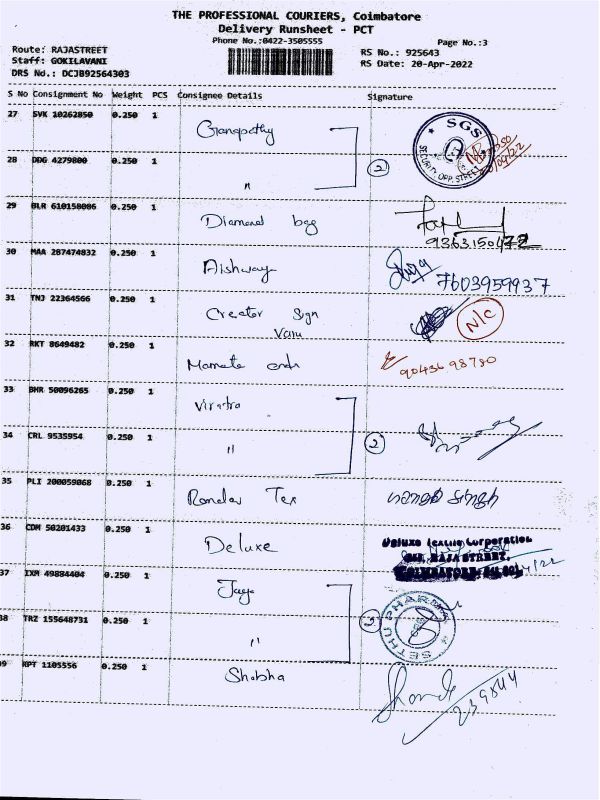 THE PROFESSIONAL COURIERS, Coimbatore
Delivery Runsheet - PCT
Phone No.:0422-3505555
Page No.:3
Route: RAJASTREET
Staff: GOKILAVANI
DRS No.: DCJB92564303
RS No.: 925643
RS Date: 20-Apr-2022
S No Consignment No Weight PCS Consignee Details Signature
27 SVK 10262850 0.250 1 Ganapathy
SGS
SECURITY OPP. STREET
28 DDG 4279800 0.250 1 " 2
29 BLR 610158086 0.250 1 Diamond bag
9363150472
30 MAA 287474832 0.250 1 Aishwaya 7603959937
31 TNJ 22364566 0.250 1 Creator Sign N/C
Varu
32 RKT 8649482 0.250 1 Mamate
9043698780
33 BHR 50096265 0.250 1 Viratra
34 CRL 9535954 0.250 1 " 2
35 PLI 200059068 0.250 1 Tex
36 CDM 50201433 0.250 1 Deluxe
Deluxe Textile Corporation
RAJA STREET,
COIMBATORE-641 001
37 IXM 49884404 0.250 1 Jaya
38 TRZ 155648731 0.250 1 " 2
SETHU PHARMA
39 KPT 1105556 0.250 1 Shobha
239844